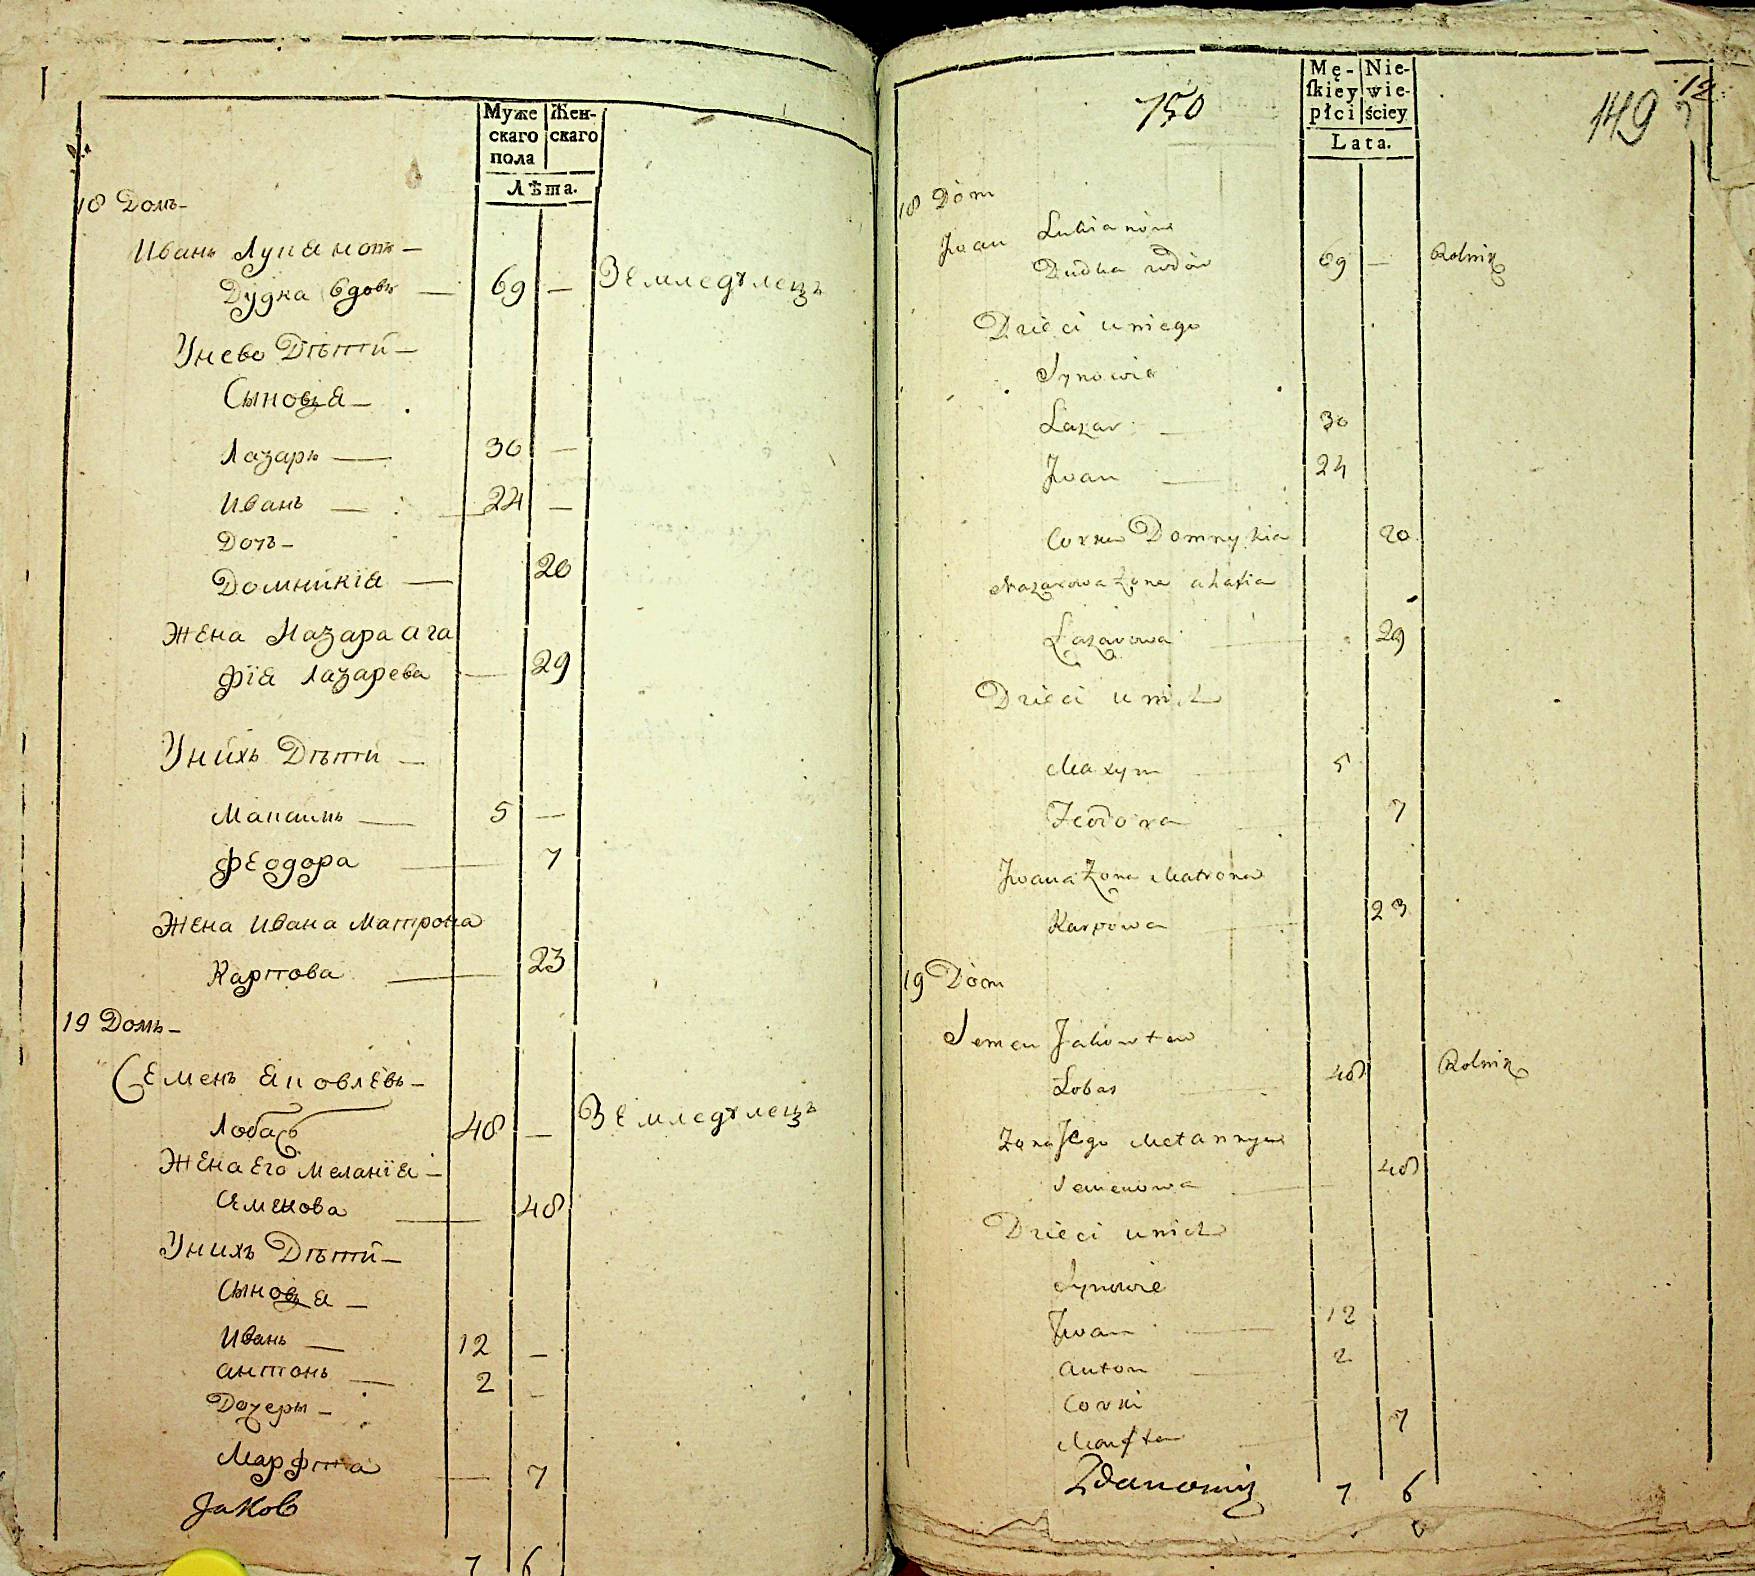 Муже
скаго
пола
Жен-
скаго
Лѣта.
18 Домъ-
Иванъ Лукяновъ -
Дудка вдовъ — 69 — Земледѣлецъ
Унево Дѣтти -
Сыновья -
Лазаръ — 30 —
Иванъ — 24 —
Дочъ -
Домникія — 20
Жена Лазара Ага
фія Лазарева — 29
Унихъ Дѣтти -
Макаимъ — 5 —
Феодора — 7
Жена Ивана Матрона
Карпова — 23
19 Домъ -
Семенъ Яковлевъ -
Лобасъ 48 — Земледѣлецъ
Жена Его Меланія -
Семенова — 48
Унихъ Дѣтти -
Сыновья -
Иванъ — 12 —
Антонъ — 2 -
Дочеры -
Марфта — 7
Jakob
7 6
750
Mę-
ſkiey
płci
Nie-
wie-
ściey
Lata.
149
12
18 Dòm
Jwan Lukianów
Dudka wdów 69 — Rolnik
Dzieci uniego
Synowie
Lazar — 30
Jwan — 24
Corka Domnykia 20
Nazarowa Żona ahafia
Lazarowa — 29
Dzieci unich
Maxym — 5
Feodora — 7
Jwana Żona Matrona
Karpowa — 23
19 Dòm
Semen Jakowlew
Lobas — 48 Rolnik
Żona Jego Melannya
Semenowa — 48
Dzieci unich
Synowie
Jwan — 12
Anton — 2
Corki
Marfta — 7
Zdanowicz 7 6